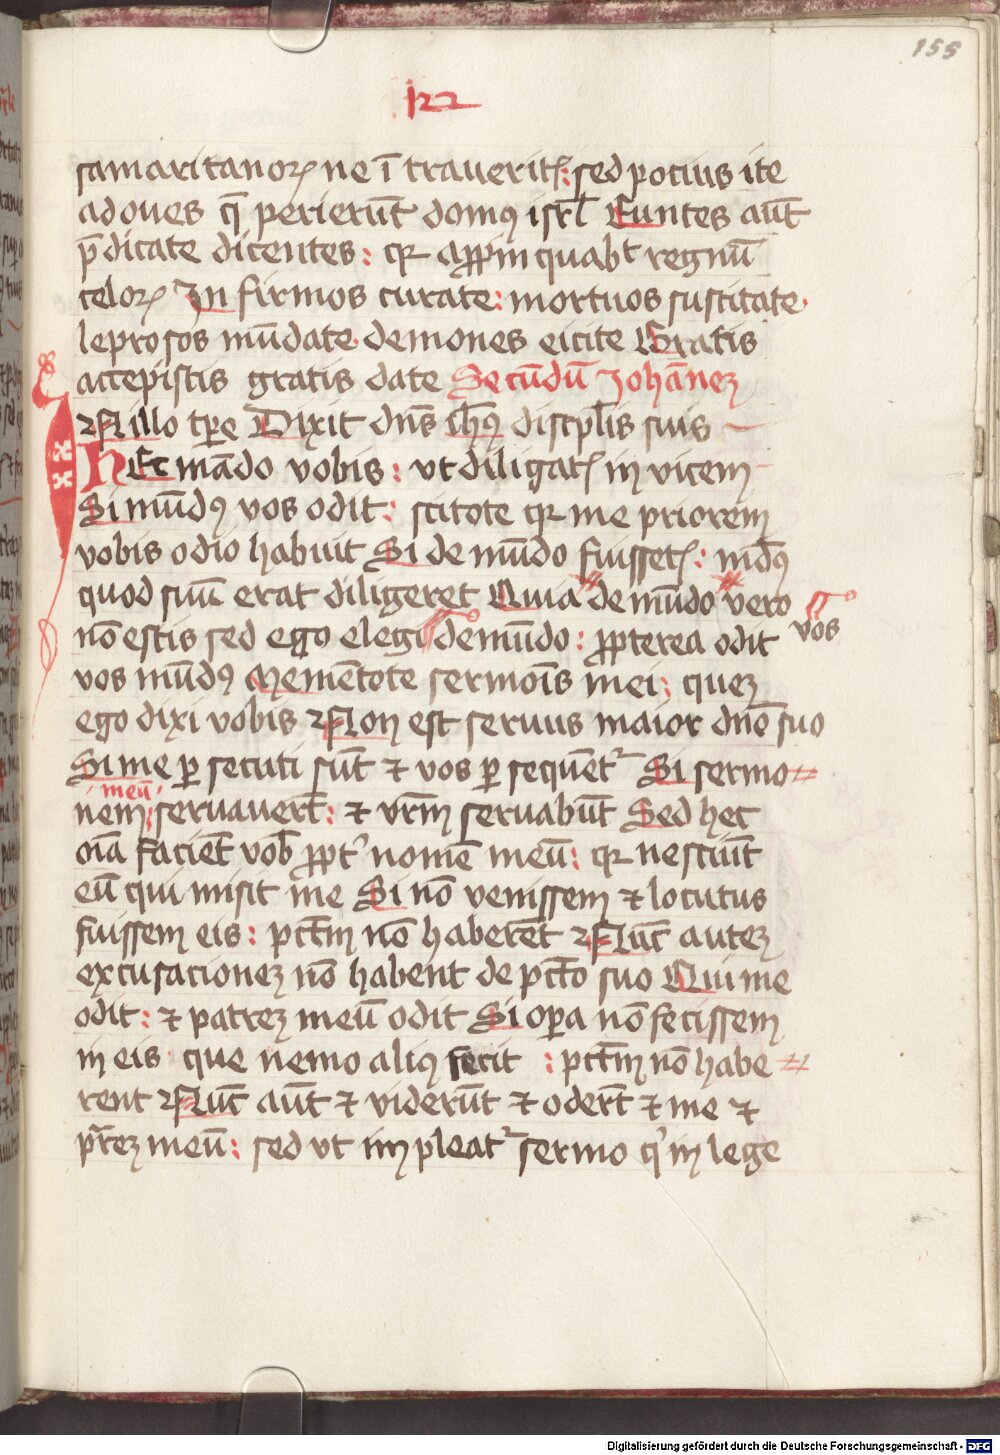 155
122
samaritanoꝝ ne ī traueritꝭ: sed pocius ite
ad oues q̄ perierūt domꝰ isrl̄ Euntes aūt
p̄dicate dicentes: qꝛ appinquabt regnū
celoꝝ In firmos curate: mortuos suscitate·
leprosos mūdate· demones eicite Gratis
accepistis gratis date Secūdū Johānez
In illo tꝑe Dixit dn̄s ih̄ꝰ discpl̄is suis
Hec mādo vobis: vt diligatꝭ in vicem
Si mūdꝰ vos odit: scitote qꝛ me priorem
vobis odio habuit Si de mūdo fuissetꝭ: mūdꝰ
quod suū erat diligeret Quia de mūdo vero
nō estis sed ego elegi de mūdo: ꝓpterea odit vos
vos mūdꝰ Mementote sermōis mei: quez
ego dixi vobis Non est seruus maior dn̄o suo
Si me ꝑ secuti sūt ⁊ vos ꝑ sequēt Si sermo=
meū
nem: seruauert̄: ⁊ vr̄m seruabūt Sed hec
oīa facient vob̄ ꝓpt' nomē meū: qꝛ nesciūt
eū qui misit me Si nō venissem ⁊ locutus
fuissem eis: pct̄m nō haberēt Nūc autez
excusacionez nō habent de pct̄o suo Qui me
odit: ⁊ patrez meū odit Si oꝑa nō fecissem
in eis· que nemo aliꝰ fecit : pct̄m nō habe=
rent Nūc aūt ⁊ viderūt ⁊ odert̄ ⁊ me ⁊
pr̄ez meū: sed vt impleat' sermo q' in lege
Digitalisierung gefördert durch die Deutsche Forschungsgemeinschaft - DFG